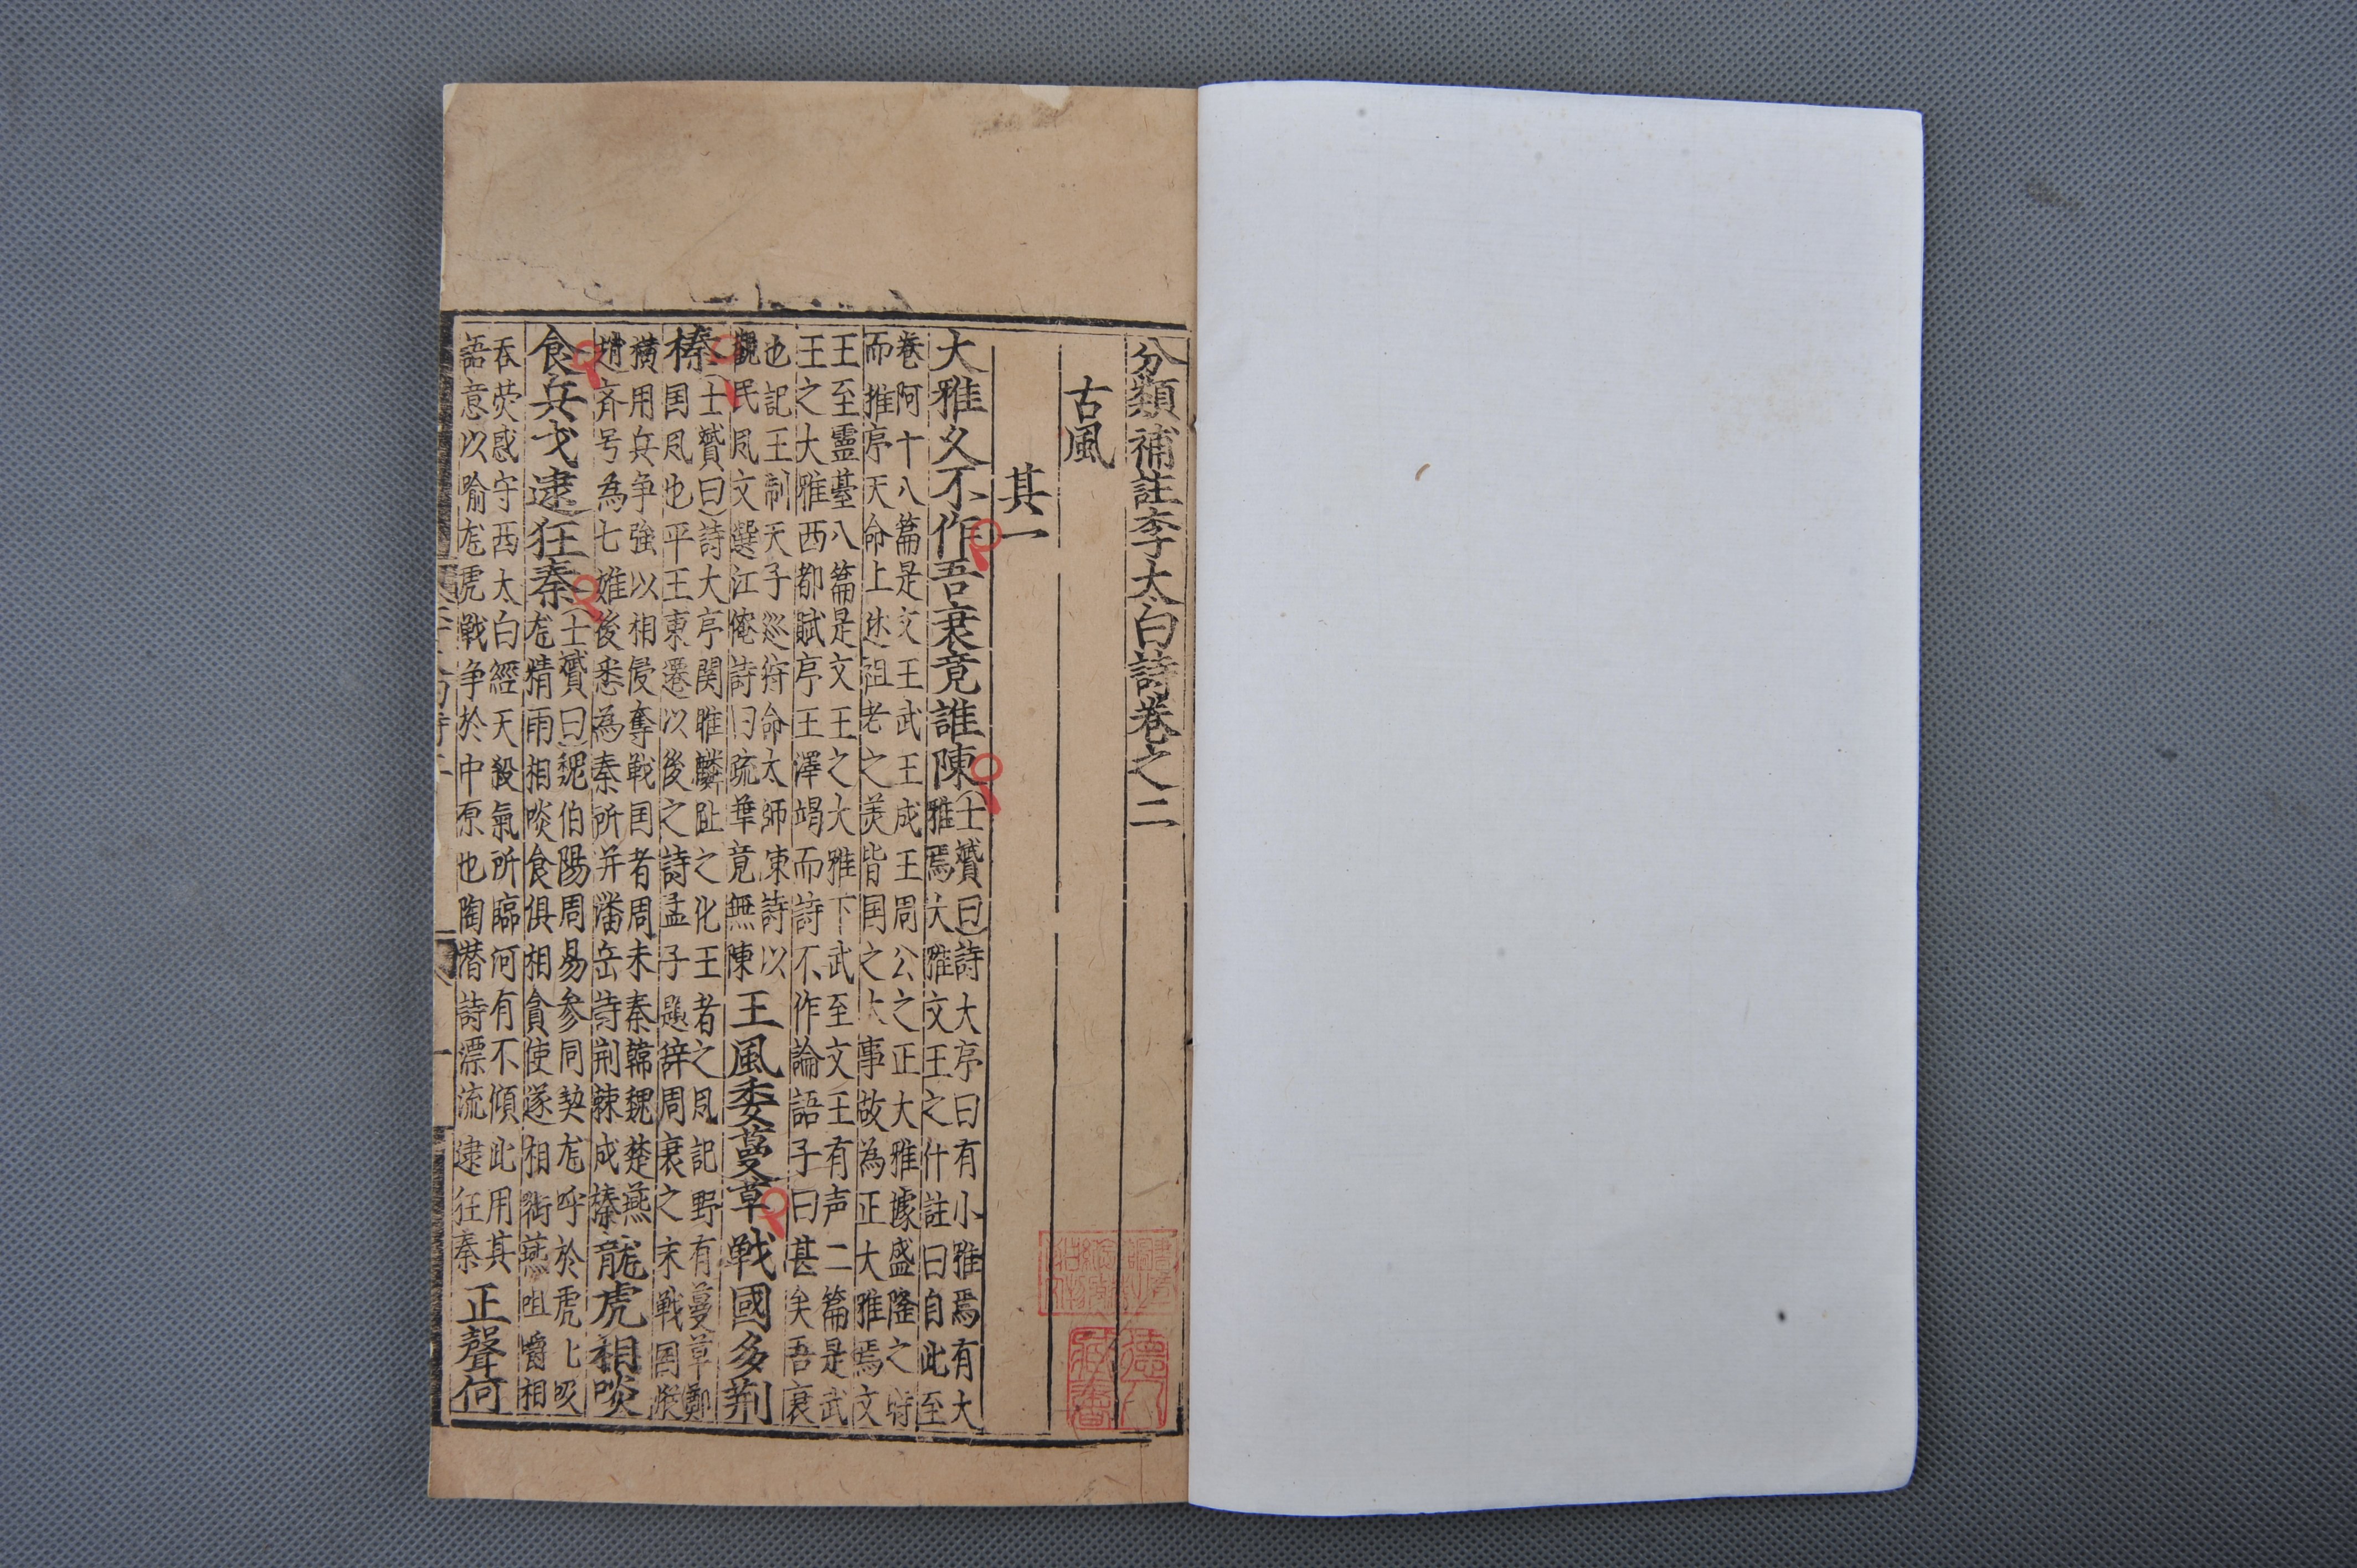 分類補註李太白詩卷之二
古風
其一
大雅久不作吾衰竟誰陳
士贇曰詩大序曰有小雅焉有大
雅焉大雅文王之什註曰自此至
卷阿十八篇是文王武王成王周公之正大雅據盛隆之時
而推序天命上述祖考之美皆国之大事故為正大雅焉文
王至靈臺八篇是文王之大雅下武至文王有声二篇是武
王之大雅西都賦序王澤竭而詩不作論語子曰甚矣吾衰
也記王制天子巡狩命太師陳詩以
觀民風文選江淹詩曰疏華竟無陳
王風委蔓草戰國多荆
榛
士贇曰詩大序関雎麟趾之化王者之風記野有蔓草鄭
国風也平王東遷以後之詩孟子題辞周衰之末戦国縱
横用兵争強以相侵奪戦国者周末秦韓魏楚燕
趙齐号為七雄後悉為秦所并潘岳詩荆棘成榛
龍虎相啖
食兵戈逮狂秦
士贇曰魏伯陽周易参同契龙呼於虎ヒ吸
龙精雨相啖食俱相貪使遂相衒燕咀嚼相
吞荧惑守西太白經天殺氣所臨何有不傾此用其
語意以喻龙虎戰争於中原也陶潜詩漂流逮狂秦
正聲何